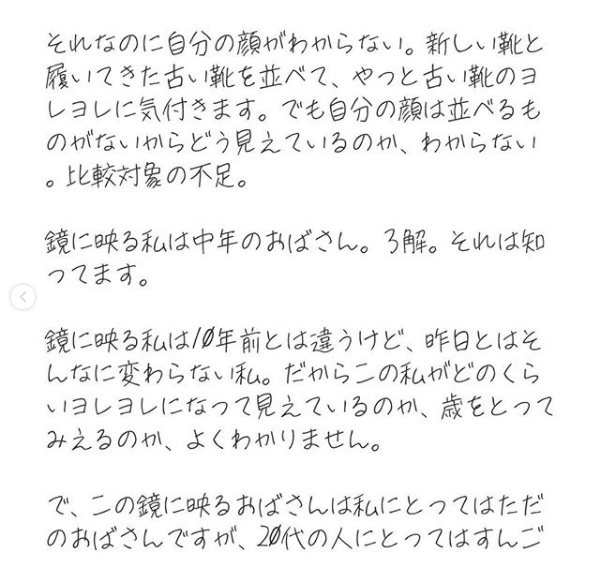 それなのに自分の顔がわからない。新しい靴と
履いてきた古い靴を並べて、やっと古い靴のヨ
レヨレに気付きます。でも自分の顔は並べるも
のがないからどう見えているのか、わからない
。比較対象の不足。
鏡に映る私は中年のおばさん。了解。それは知
ってます。
鏡に映る私は10年前とは違うけど、昨日とはそ
んなに変わらない私。だからこの私がどのくら
いヨレヨレになって見えているのか、歳をとって
みえるのか、よくわかりません。
で、この鏡に映るおばさんは私にとってはただ
のおばさんですが、20代の人にとってはすんご